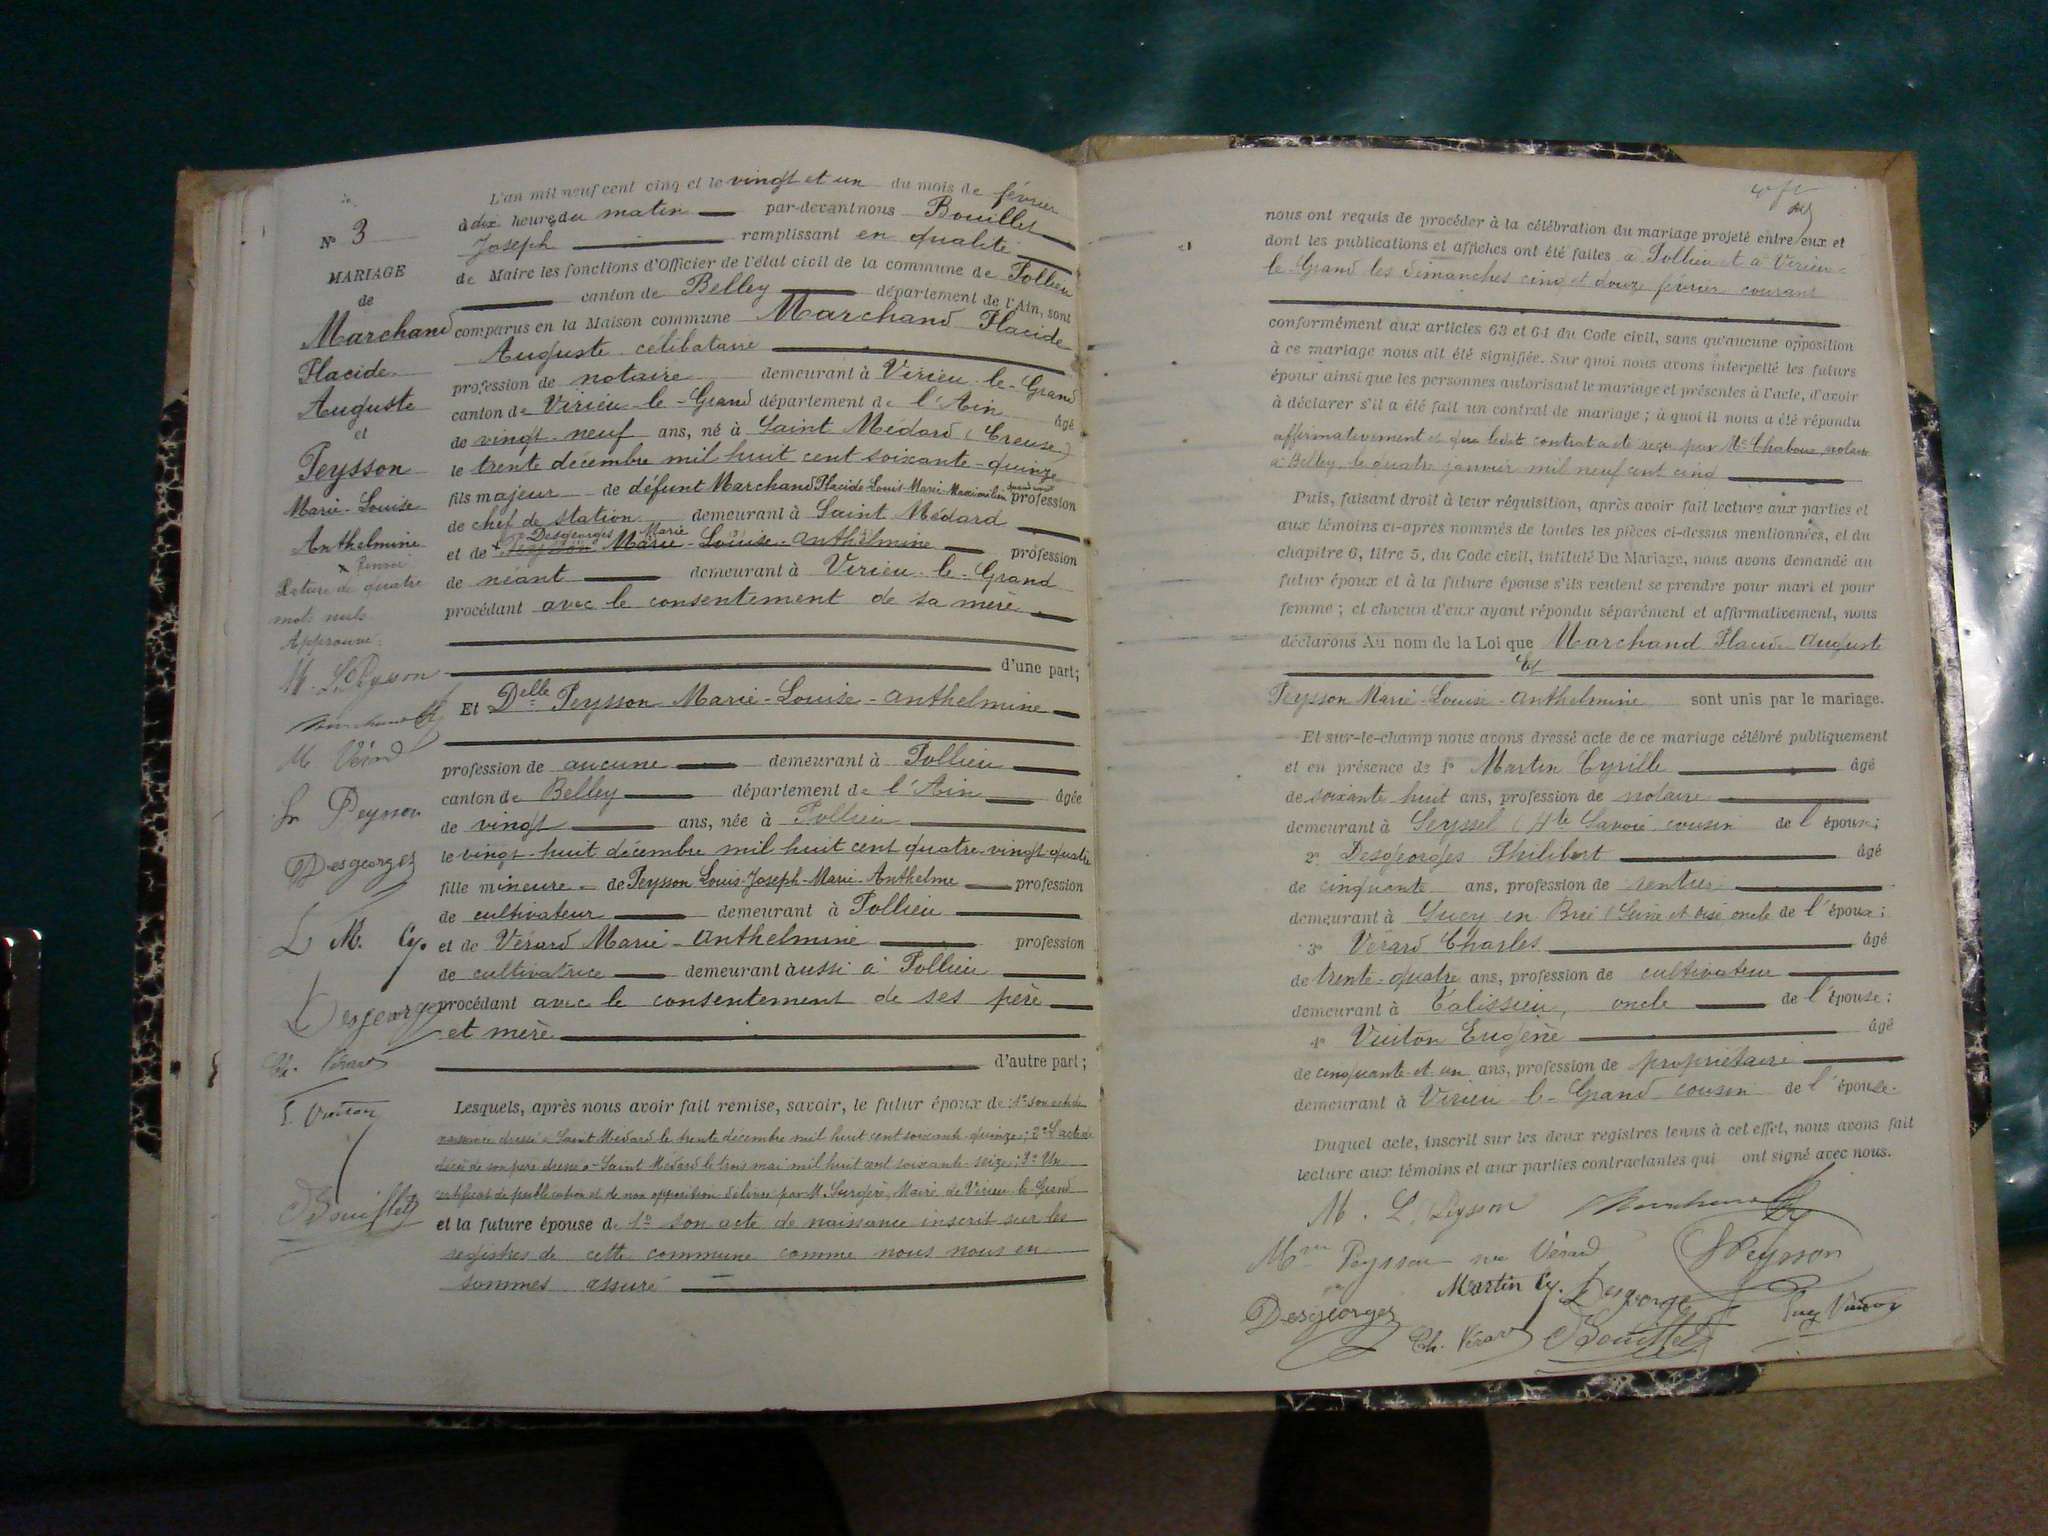 L'an mil neuf cent cinq et le vingt et un du mois de février
à dix heures du matin par-devant nous Bouillet
Joseph remplissant en qualité
de Maire les fonctions d'Officier de l'état civil de la commune de Pollieu
canton de Belley département de l'Ain, sont
comparus en la Maison commune Marchand Placide
Auguste célibataire
profession de notaire demeurant à Virieu-le-Grand
canton de Virieu-le-Grand département de l'Ain âgé
de vingt-neuf ans, né à Saint Médard (Creuse)
le trente décembre mil huit cent soixante-quinze
fils majeur de défunt Marchand Placide-Louis-Marie-Maximilien profession
de chef de station demeurant à Saint Médard
Desgeorges Marie
et de Marie-Louise-Anthelmine profession
de néant demeurant à Virieu-le-Grand
procédant avec le consentement de sa mère
d'une part;
Et Delle Peysson Marie-Louise-Anthelmine
profession de aucune demeurant à Pollieu
canton de Belley département de l'Ain âgée
de vingt ans, née à Pollieu
le vingt-huit décembre mil huit cent quatre-vingt-quatre
fille mineure de Peysson Louis-Joseph-Marie-Anthelme profession
de cultivateur demeurant à Pollieu
et de Vérard Marie-Anthelmine profession
de cultivatrice demeurant aussi à Pollieu
procédant avec le consentement de ses père
et mère
d'autre part;
Lesquels, après nous avoir fait remise, savoir, le futur époux de 1º son acte de
naissance dressé à Saint Médard le trente décembre mil huit cent soixante-quinze; 2º L'acte de
décès de son père dressé à Saint Médard le trois mai mil huit cent soixante-seize; 3º Un
certificat de publication et de non opposition délivré par M. Maire de Virieu-le-Grand
et la future épouse de 1º son acte de naissance inscrit sur les
registres de cette commune comme nous nous en
sommes assuré
Nº 3
MARIAGE
de
Marchand
Placide
Auguste
et
Peysson
Marie-Louise
Anthelmine
Rature de quatre
mots nuls
Approuvé.
M. L. Peysson
M Vérard
Peysson
Desgeorges
M. Cy.
Desgeorges
Ch. Vérard
E. Vuiton
Bouillet
nous ont requis de procéder à la célébration du mariage projeté entre eux et
dont les publications et affiches ont été faites à Pollieu et à Virieu-
le-Grand les dimanches cinq et douze février courant
conformément aux articles 63 et 64 du Code civil, sans qu'aucune opposition
à ce mariage nous ait été signifiée. Sur quoi nous avons interpellé les futurs
époux ainsi que les personnes autorisant le mariage et présentes à l'acte, d'avoir
à déclarer s'il a été fait un contrat de mariage; à quoi il nous a été répondu
affirmativement et que ledit contrat a été reçu par Me notaire
à Belley, le quatre janvier mil neuf cent cinq
Puis, faisant droit à leur réquisition, après avoir fait lecture aux parties et
aux témoins ci-après nommés de toutes les pièces ci-dessus mentionnées, et du
chapitre 6, titre 5, du Code civil, intitulé Du Mariage, nous avons demandé au
futur époux et à la future épouse s'ils veulent se prendre pour mari et pour
femme; et chacun d'eux ayant répondu séparément et affirmativement, nous
déclarons Au nom de la Loi que Marchand Placide Auguste
et
Peysson Marie-Louise-Anthelmine sont unis par le mariage.
Et sur-le-champ nous avons dressé acte de ce mariage célébré publiquement
et en présence de 1º Martin Cyrille âgé
de soixante huit ans, profession de notaire
demeurant à Seyssel (Hte Savoie cousin de l'époux;
2º Desgeorges Philibert âgé
de cinquante ans, profession de rentier
demeurant à Sucy en Brie (Seine et Oise oncle de l'époux;
3º Vérard Charles âgé
de trente-quatre ans, profession de cultivateur
demeurant à Talissieu, oncle de l'épouse;
4º Vuiton Eugène âgé
de cinquante et un ans, profession de propriétaire
demeurant à Virieu-le-Grand cousin de l'épouse.
Duquel acte, inscrit sur les deux registres tenus à cet effet, nous avons fait
lecture aux témoins et aux parties contractantes qui ont signé avec nous.
M. L. Peysson
Mme Peysson née Vérard Peysson
Martin Cy. Desgeorges
Desgeorges Ch. Vérard Bouillet Eug Vuiton